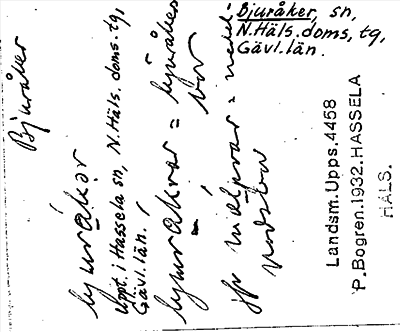 Bjuråker, sn,
N. Häls. doms, tg,
Gävl. län.
Bjuråker
bjuråkər
Uppt. i Hassela sn, N. Häls. doms. tg,
Gävl. län.
bjuråkrar = bjuråkers
bor
jfr
=
Landsm. Upps. 4458
P. Bogren. 1932. HASSELA
HÄLS.